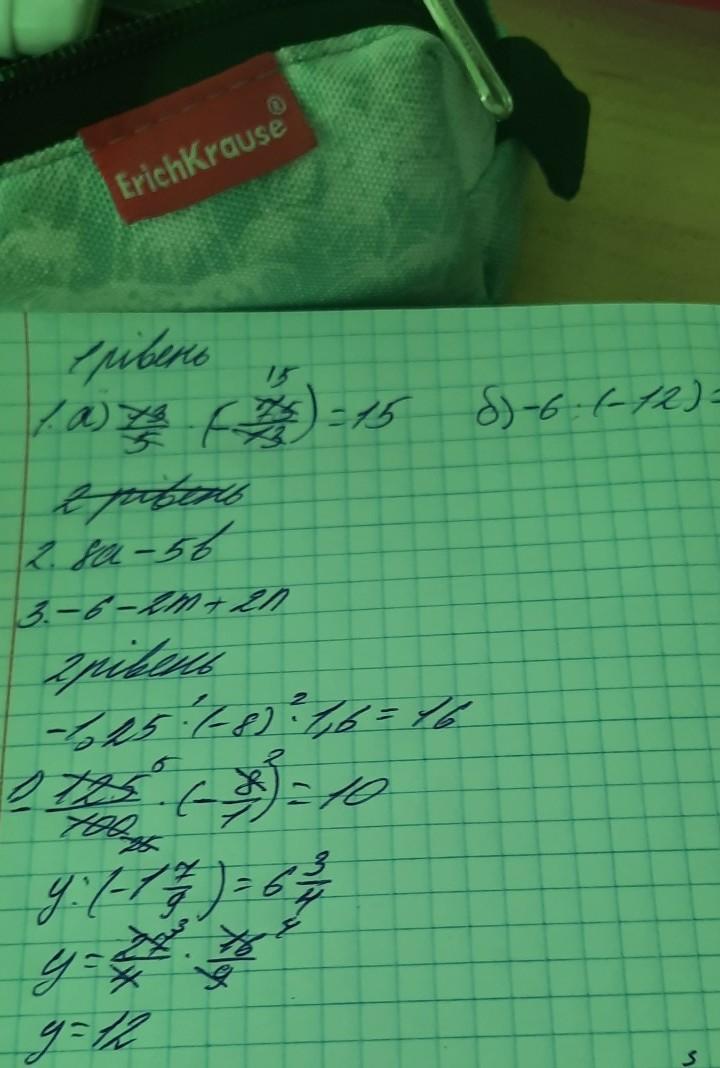 ErichKrause®
1 рівень
1. а) 73/5 · (- 75/73) = 15 б) -6 : (-12) =
2 рівень
2. 8a - 5b
3. -6 - 2m + 2n
2 рівень
-1,25 ·¹ (-8) ·² 1,6 = 16
1) - 125/100 · (- 8/1) = 10
y : (-1 7/9) = 6 3/4
y = 27/4 · 16/9
y = 12